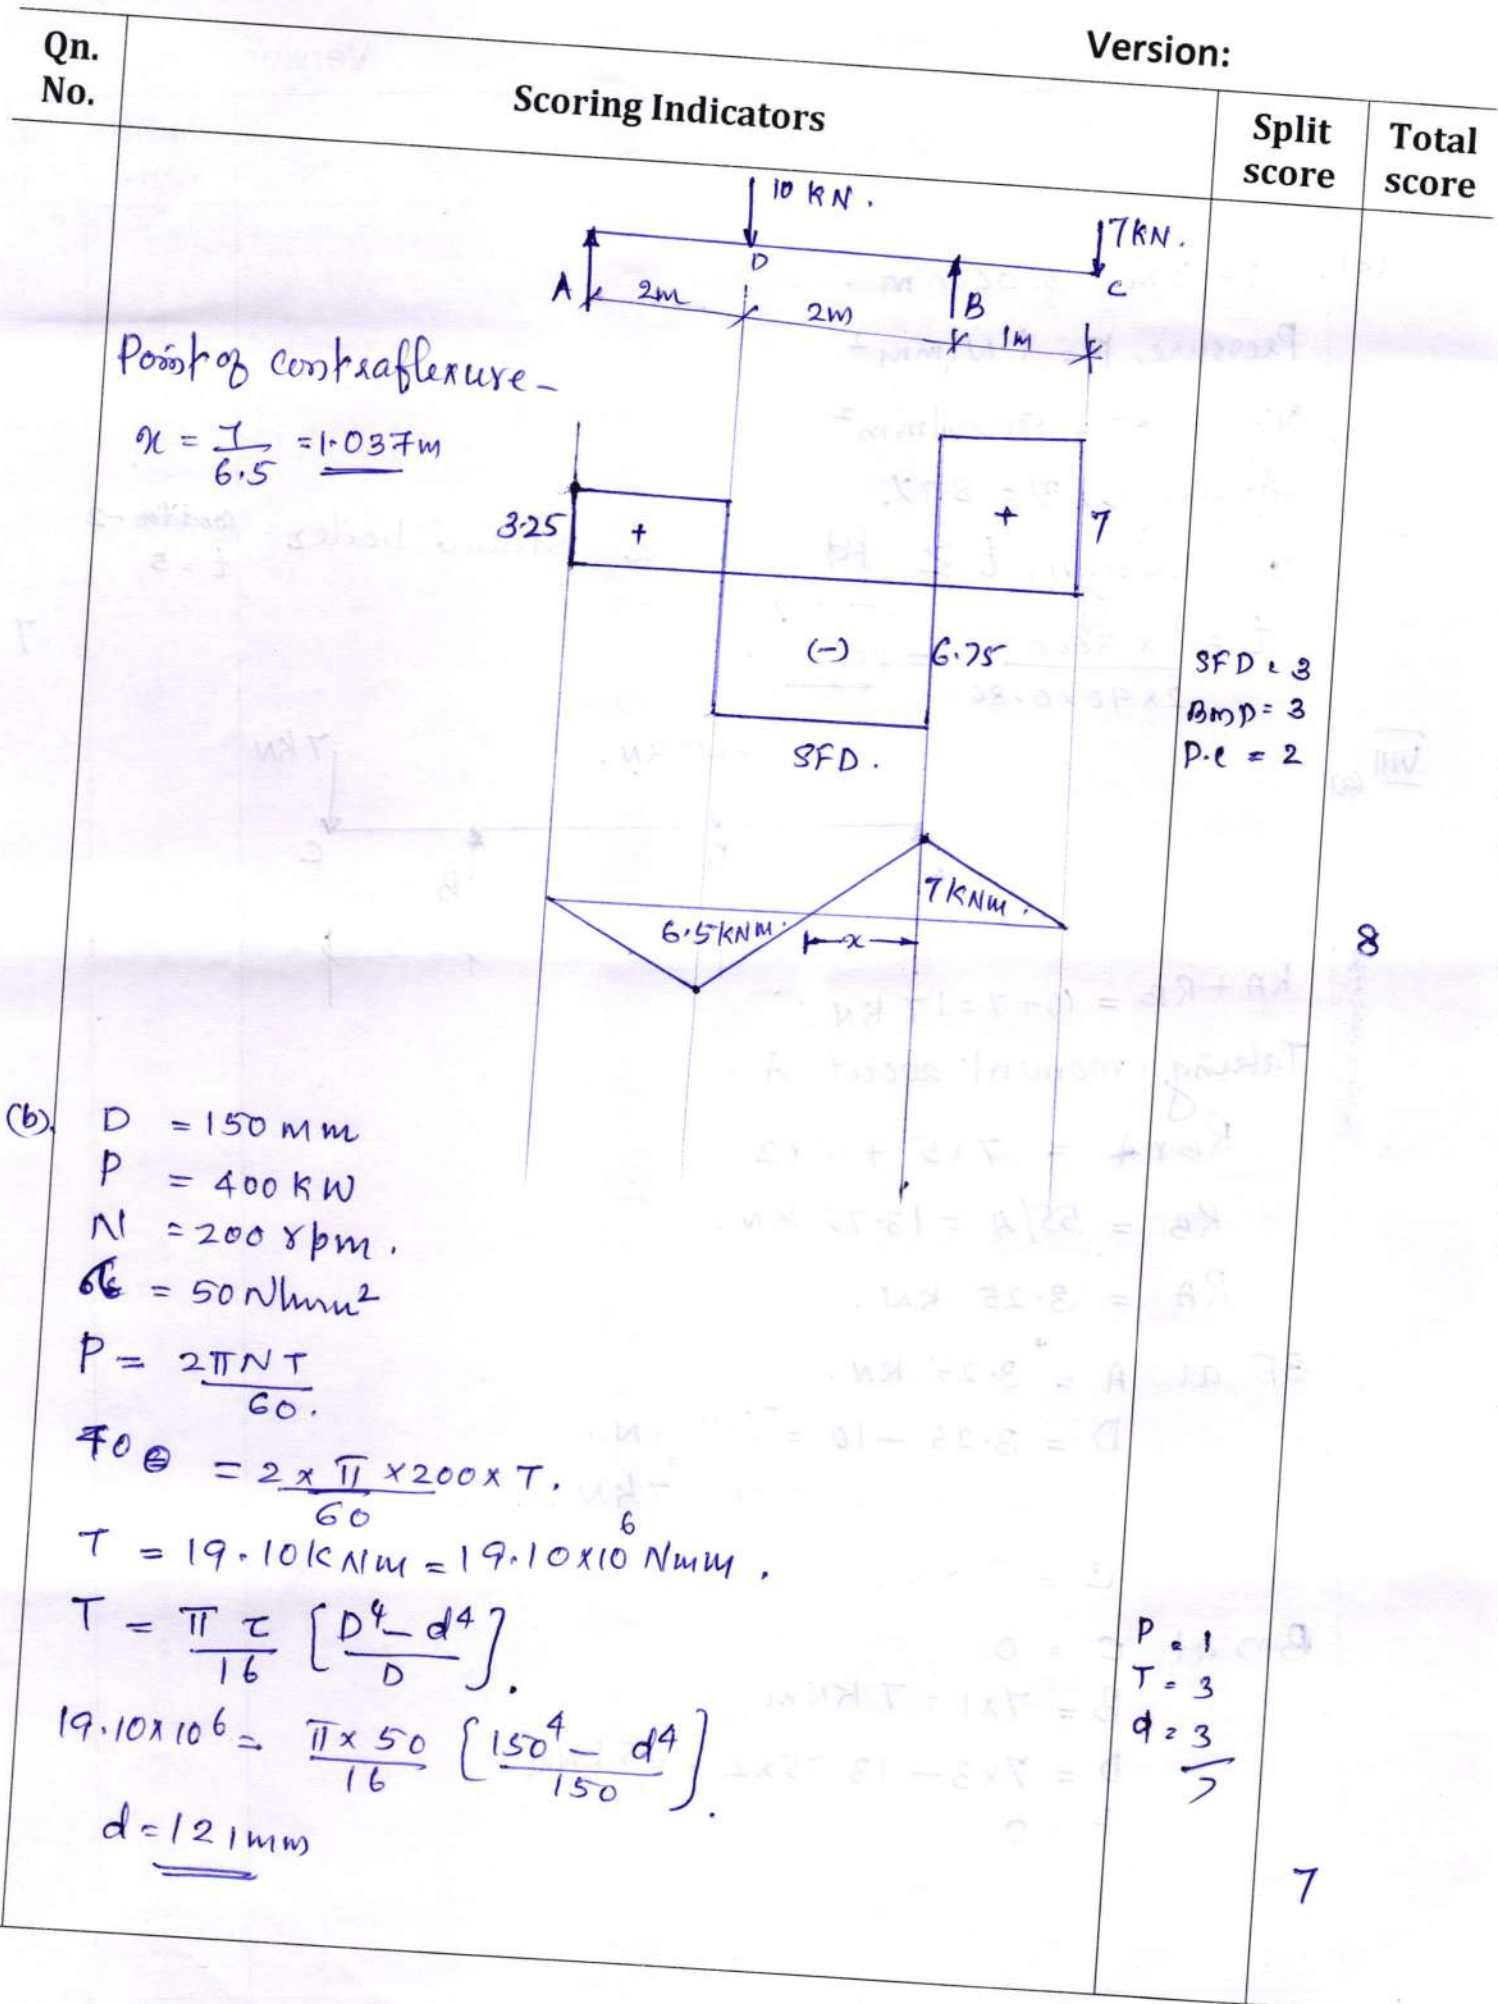 Version:
Qn. No.
Scoring Indicators
Split score
Total score
10 KN.
7KN.
D
A
2m
2m
B
1m
C
Point of contraflexure -
x = 7/6.5 = 1.037m
3.25
+
+
7
(-)
6.75
SFD = 3
BMD = 3
P.C = 2
SFD.
7KNm.
6.5KNm.
x
8
(b).
D = 150 mm
P = 400 KW
N = 200 rpm.
= 50 N/mm²
P = 2πNT/60.
= 2 x π x 200 x T. / 60
T = 19.10 KNm = 19.10x10⁶ Nmm.
T = π τ/16 [D⁴ - d⁴/D].
19.10x10⁶ = π x 50/16 [150⁴ - d⁴/150].
d = 121mm
P = 1
T = 3
d = 3
7
7